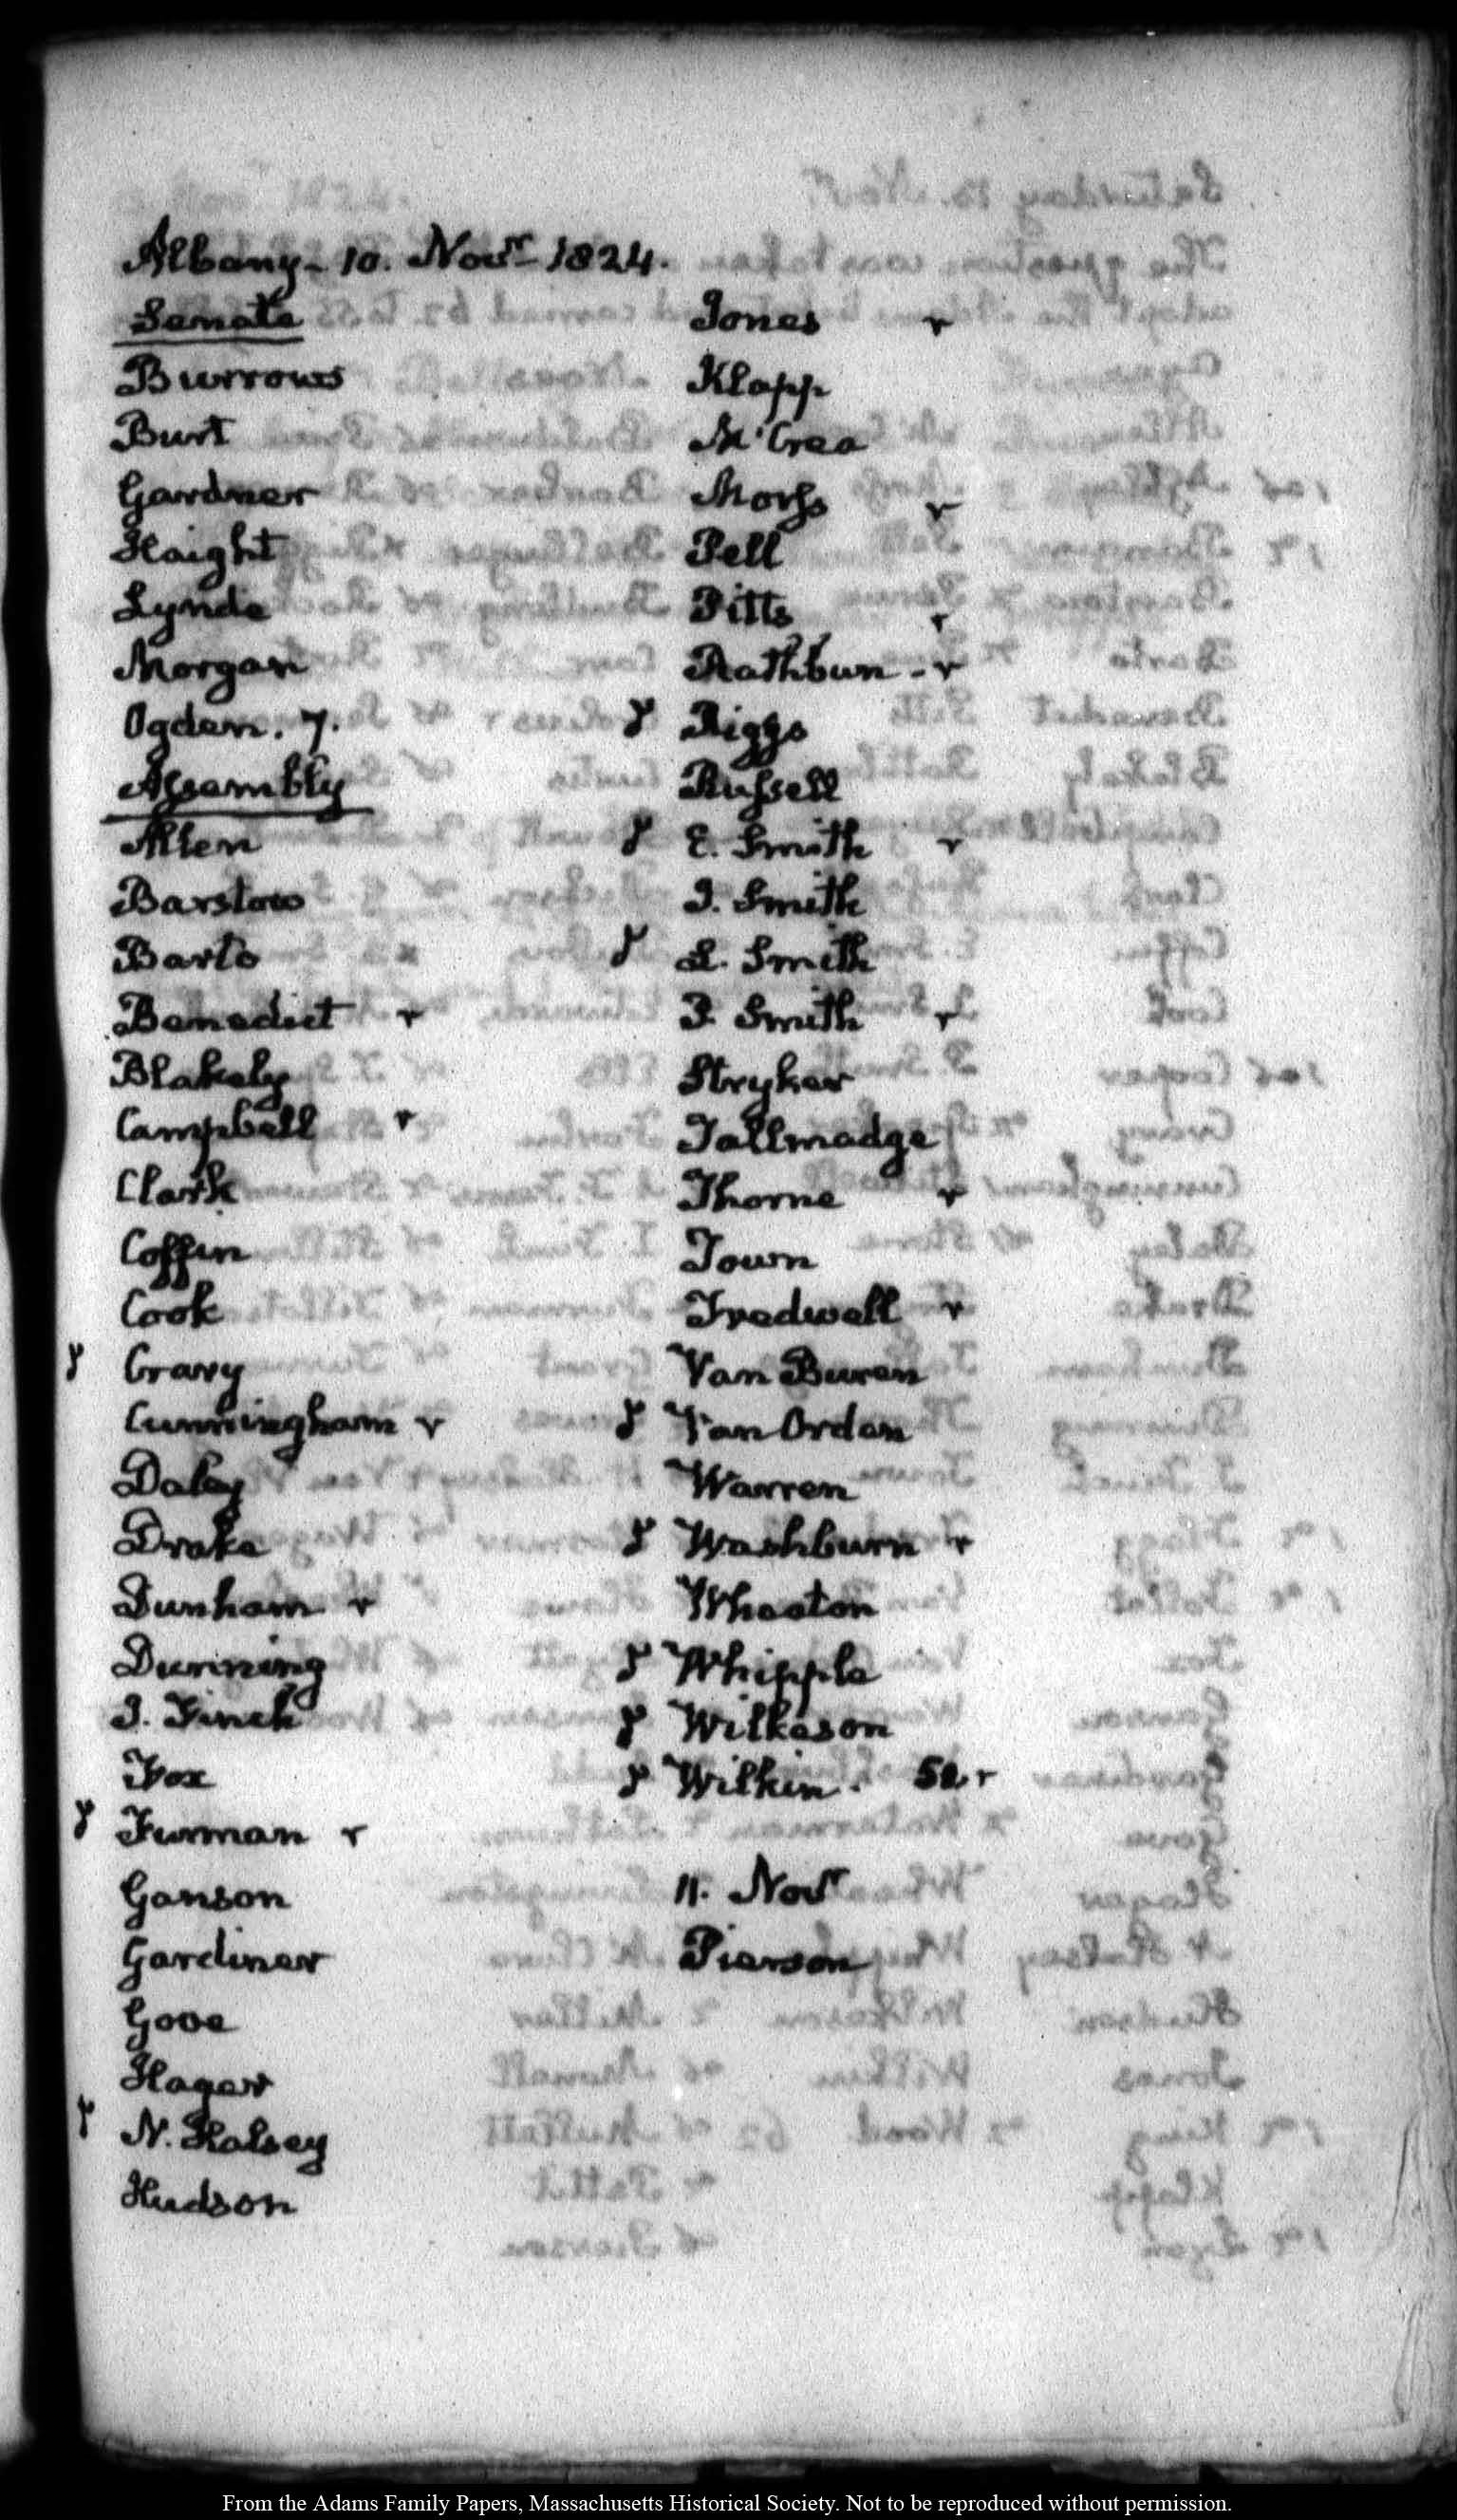 Albany - 10. Novr 1824.
Senate
Burrows
Burt
Gardner
Haight
Lynde
Morgan
Ogden. 7.
Assembly
Allen
Barstow
Barto
Benedict r
Blakely
Campbell r
Clark
Coffin
Cook
Crary
Cunningham r
Daley
Drake
Dunham r
Dunning
I. Finch
Fox
Furman r
Ganson
Gardiner
Gove
Hager
N. Halsey
Hudson
Jones r
Klapp
McCrea
Morss r
Pell
Pitts r
Rathbun - r
Riggs
Russell
E. Smith r
I. Smith
L. Smith
P. Smith r
Stryker
Tallmadge
Thorne r
Town
Tredwell r
Van Buren
Van Orden
Warren
Washburn r
Wheaton
Whipple
Wilkeson
Wilkin. 52 r
11. Novr
Pierson
From the Adams Family Papers, Massachusetts Historical Society. Not to be reproduced without permission.